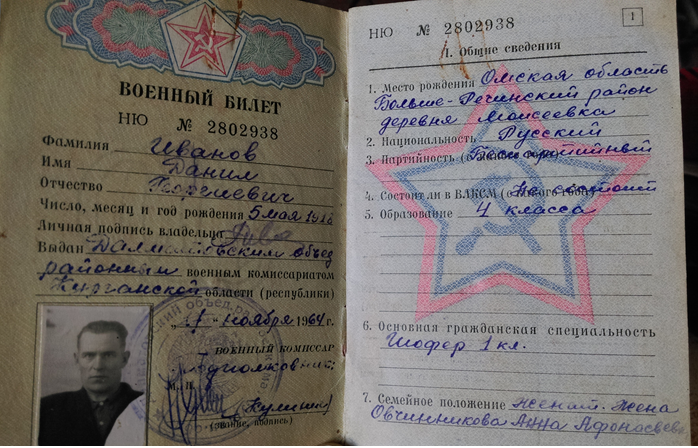 ВОЕННЫЙ БИЛЕТ
НЮ № 2802938
Фамилия Иванов
Имя Данил
Отчество
Число, месяц и год рождения 5 мая
Личная подпись владельца
Выдан Далматовским объед.
районным военным комиссариатом
Курганской области (республики)
ноября 1964 г.
ВОЕННЫЙ КОМИССАР
Подполковник
М. П.
(звание, подпись)
НЮ № 2802938
1
1. Общие сведения
1. Место рождения Омская область
Больше-Реченский район
деревня Моисеевка
2. Национальность Русский
3. Партийность Беспартийный
4. Состоит ли в ВЛКСМ (с какого года) Не состоит
5. Образование 4 класса
6. Основная гражданская специальность
Шофер 1 кл.
7. Семейное положение женат. Жена
Овчинникова Анна Афонасьевн